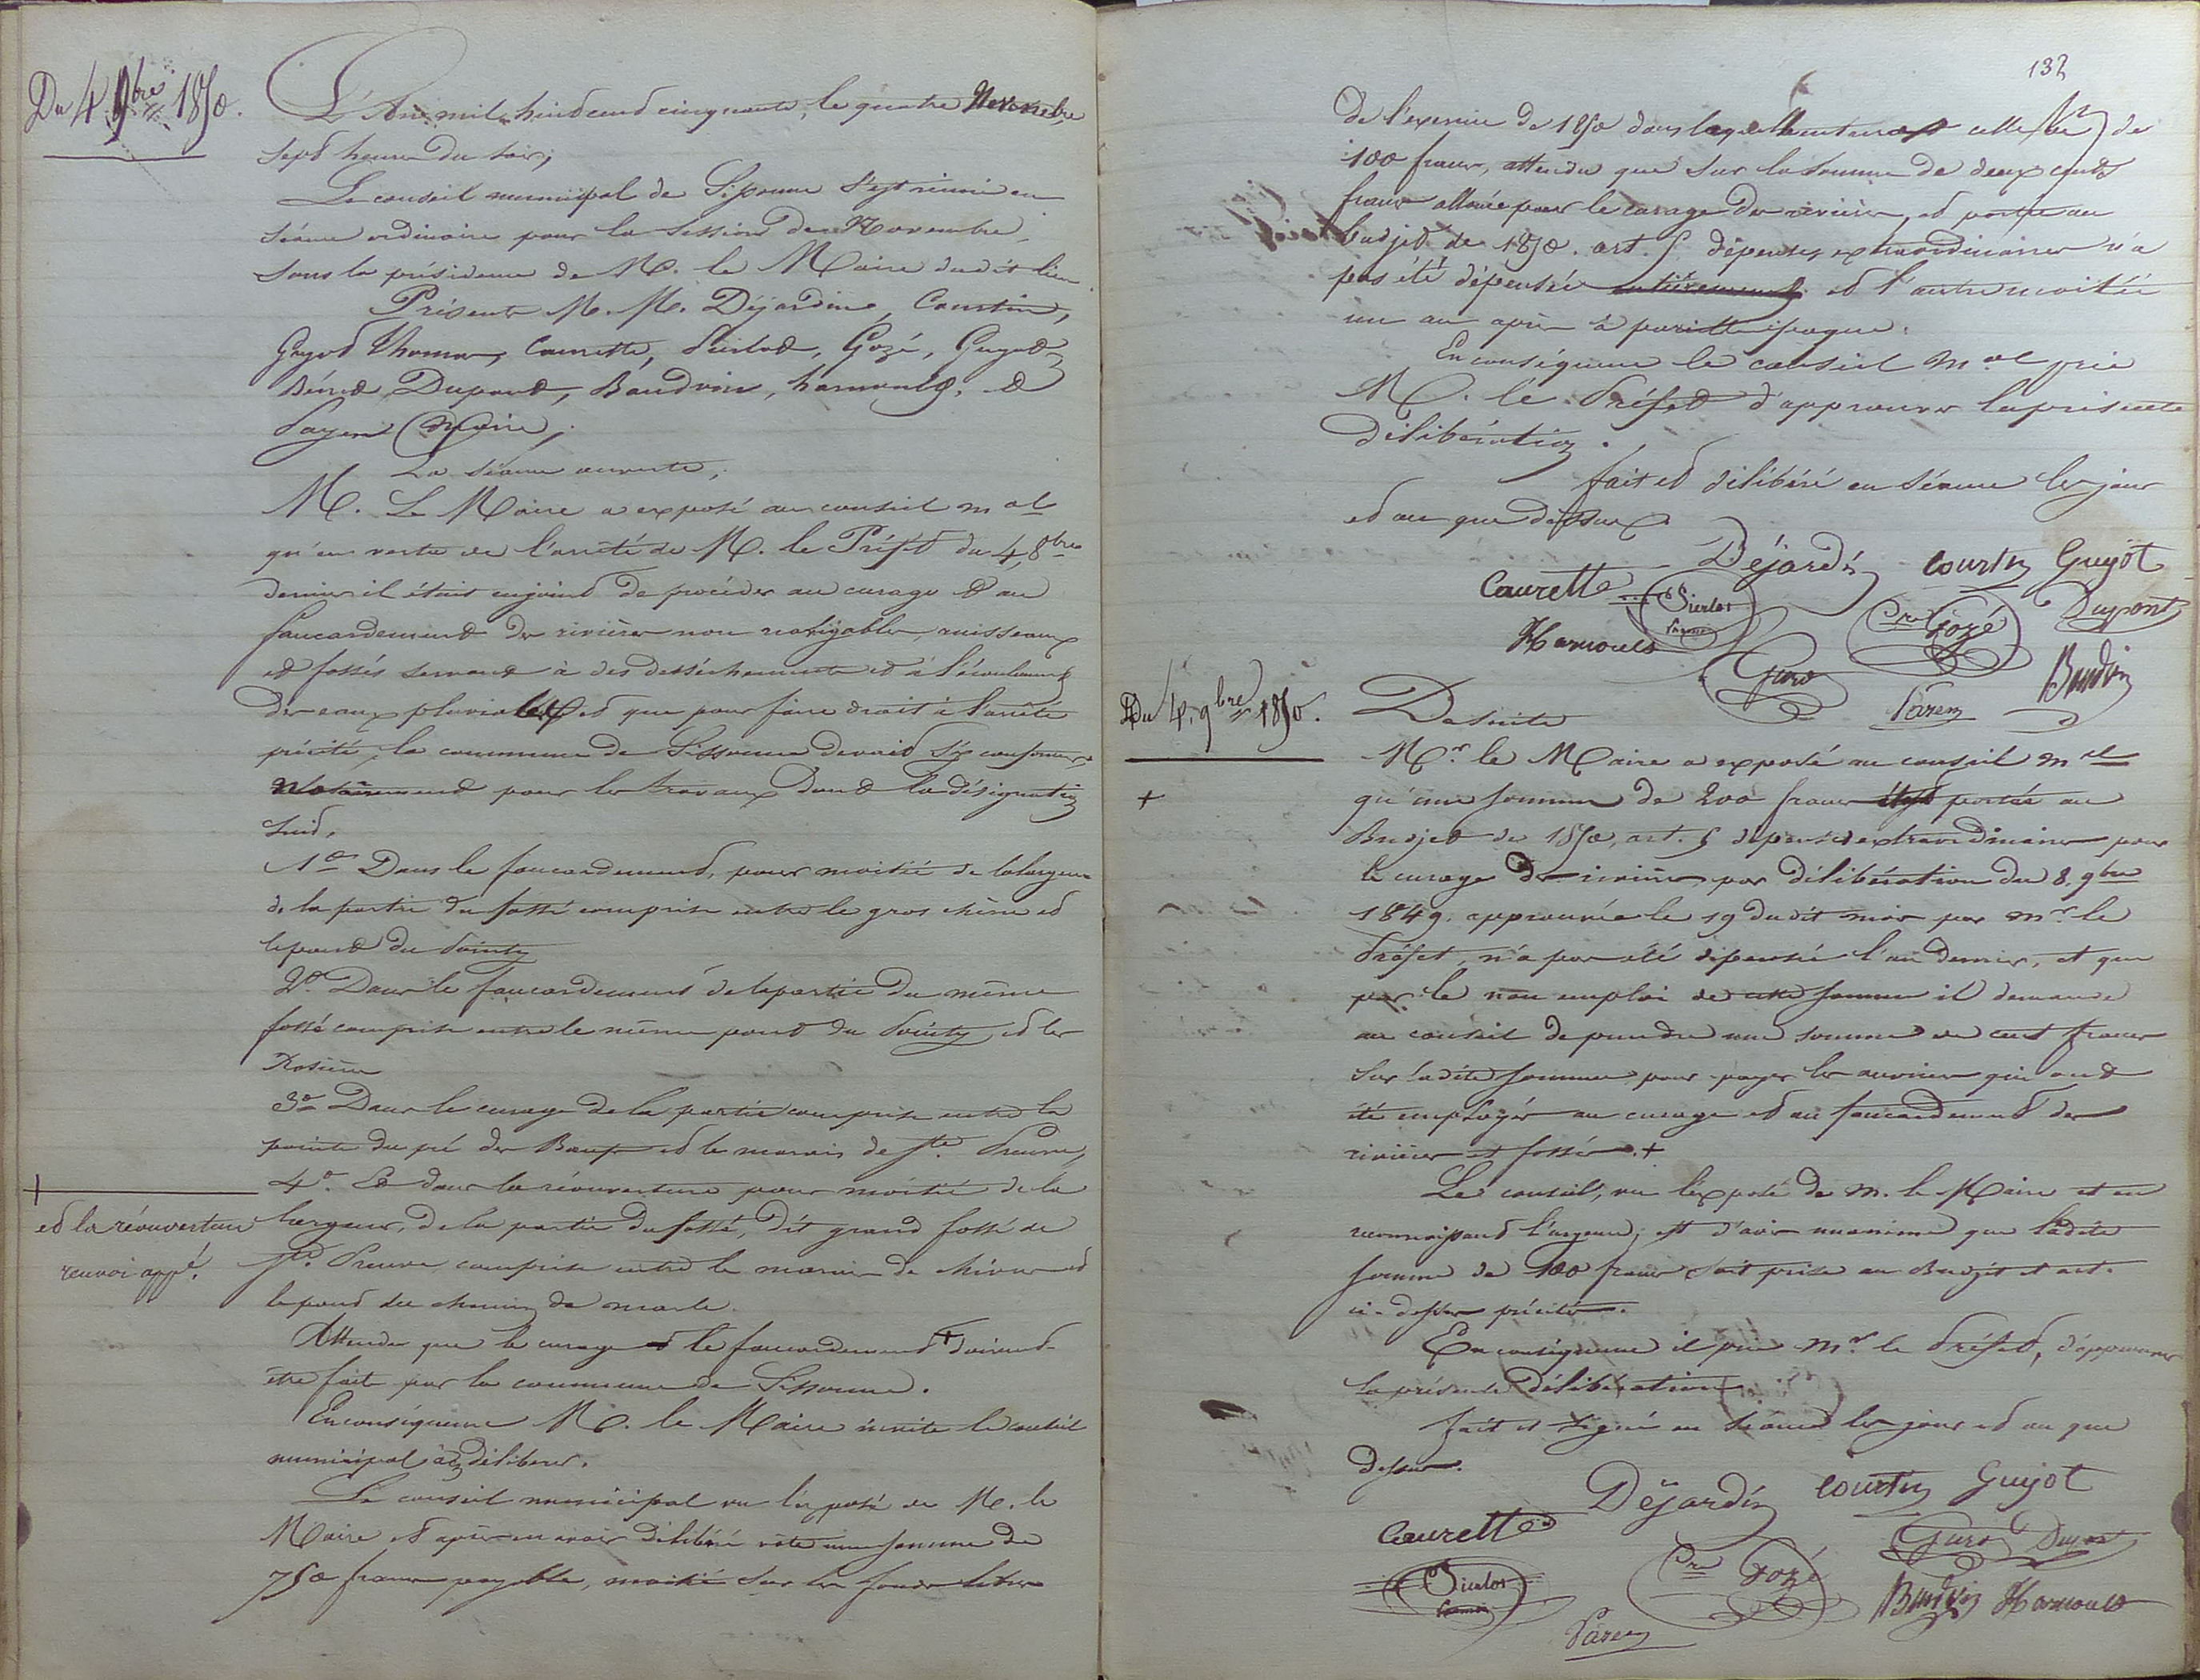 Du 4 9bre 1850.
L'An mil huit cent cinquante, le quatre Novembre
sept heures du soir;
Le conseil municipal de Sissonne s'est réuni en
séance ordinaire pour la session de Novembre,
sous la présidence de M. le Maire dudit lieu
Présents M. M. Déjardins, Courtin,
Guyot Thomas, Caurette, Pierlot, Gozé, Guyot
Dupont, Baudvin, harnoult, et
Payen Maire;
La séance ouverte,
M. Le Maire a exposé au conseil mal
qu'en vertu de l'arrêté de M. le Préfet du 4 8bre
dernier il était enjoint de procéder au curage et au
faucardement des rivières non navigables, ruisseaux
et fossés servant à des desséchements et à l'écoulement
des eaux pluviales et que pour faire droit à l'arrêté
précité, la commune de Sissonne devait s'y conformer
notamment pour les travaux dont la désignation
suit,
1o Dans le faucardement, pour moitié de la largeur
de la partie du fossé comprise entre le gros chêne et
le pont du
2o Dans le faucardement de la partie du même
fossé comprise entre le même pont du et les
Rosières
3o Dans le curage de la partie comprise entre la
pointe du pré des Bœufs et le marais de Ste Preuve,
4o Et dans la réouverture pour moitié de la
largeur, de la partie du fossé, dit grand fossé de
Ste Preuve comprise entre le marais de chivres et
le pont du chemin de marle.
Attendu que le curage et le faucardement + doivent
être faits par la commune de Sissonne.
+
et la réouverture
renvoi appé.
En conséquence M. le Maire invite le conseil
municipal à en délibérer.
Le conseil municipal vu l'exposé de M. le
Maire et après en avoir délibéré vote une somme de
750 francs payable, moitié sur les fonds libres
132
de l'exercice de 1850 dans laquelle entrera celle de
100 francs, attendu que sur la somme de deux cents
francs allouée pour le curage des rivières, et portée au
budjet de 1850. art. 5 dépenses extraordinaires n'a
pas été dépensée entièrement et l'autre moitié
un an après à pareille époque.
En conséquence le conseil mal prie
M. le Préfet d'approuver la présente
délibération.
fait et délibéré en séance les jour
et an que dessus.
Déjardin Courtin Guyot
Caurette Pierlot Cre Gozé Dupont
Harnoult Guyot Baudvin
Payen
Du 4. 9bre 1850.
+
De suite
Mr. le Maire a exposé au conseil mal
qu'une somme de 200 francs était portée au
Budjet de 1850, art. 5 dépenses extraordinaires pour
le curage des rivières par délibération du 8. 9bre
1849. approuvée le 19 dudit mois par Mr. le
Préfet, n'a pas été dépensée l'an dernier, et que
par le non emploi de cette somme il demande
au conseil de prendre une somme de cent francs
sur ladite somme pour payer les ouvriers qui ont
été employés au curage et au faucardement des
rivières et fossés. +
Le conseil, vu l'exposé de M. le Maire et en
reconnaissant l'urgence, est d'avis unanime que ladite
somme de 100 francs soit prise au Budjet et art.
ci-dessus précités.
En conséquence il prie Mr. le Préfet, d'approuver
la présente délibération
fait et signé en séance les jour et an que
dessus.
Déjardin Courtin Guyot
Caurette Guyot Dupont
Pierlot Cre Gozé Baudvin Harnoult
Payen